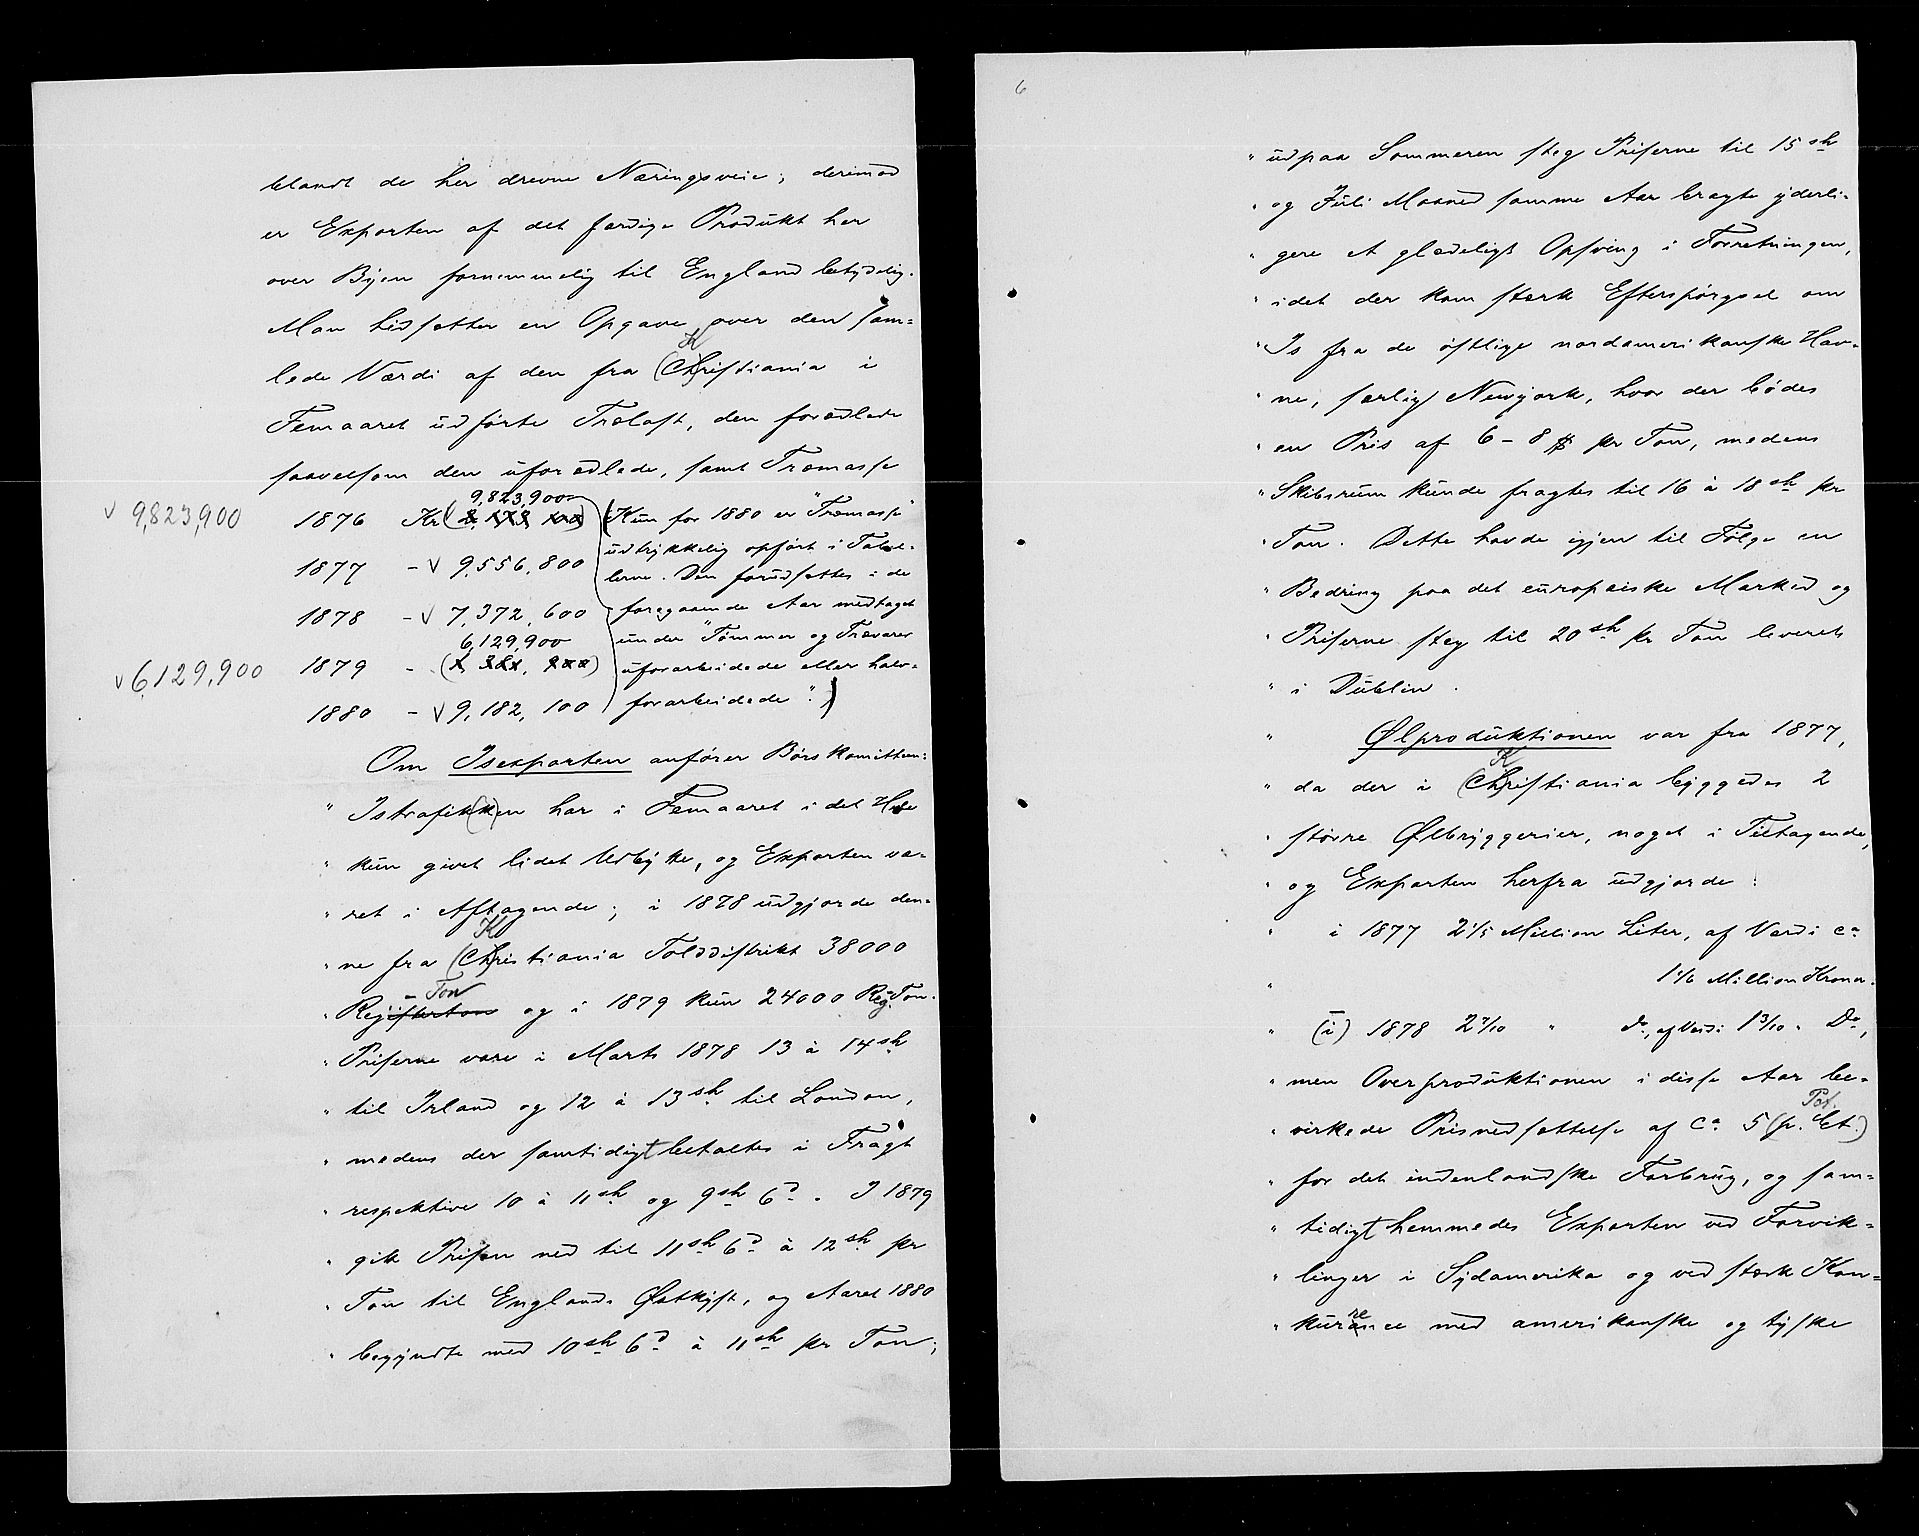 blandt de her drevne Næringsveie; derimod
er Exporten af det færdige Produkt her
over Byen fornemmelig til England betydelig.
Man hidsætter en Opgave over den sam=
lede Værdi af den fra (Ch)ristiania i
K
Femaaret udførte Trælast, den forædlede
saavelsom den uforædlede, samt Træmasse
9,823,900
√ 9,823,900
1876 Kr (Kun for 1880 er "Træmasse"
udtrykkelig opført i Tabel-
1877 - √ 9,556,800
lerne. Den forudsættes i de
1878 - √ 7,372,600
foregaaende Aar medtaget
6,129,900
under "Tømmer og Trævarer
√ 6,129,900
1879 - uforarbeidede eller halv-
1880 - √ 9,182,100
forarbeidede".)
Om Isexporten anfører Børskomitteen:
" Istrafik(k)en har i Femaaret i det Hele
" kun givet lidet Udbytte, og Exporten væ-
" ret i Aftagende; i 1878 udgjorde den-
K
" ne fra (Ch)ristiania Tolddistrikt 38000
- Ton
" Registerton og i 1879 kun 24000 Reg-Ton.
" Priserne vare i Marts 1878 13 à 14 sh
" til Irland og 12 à 13 sh til London,
" medens der samtidigt betaltes i Fragt
" respektive 10 à 11 sh og 9 sh 6 d. I 1879
" gik Prisen ned til 11 sh 6 d à 12 sh pr
" Ton til Englands Østkyst, og Aaret 1880
" begyndte med 10 sh 6 d à 11 sh pr Ton;
6
" udpaa Sommeren steg Priserne til 15 sh
" og Juli Maaned samme Aar bragte yderli-
" gere et glædeligt Opsving i Forretningen,
" idet der kom stærk Efterspørgsel om
" Is fra de østlige nordamerikanske Hav-
" ne, særlig Newyork, hvor der bødes
" en Pris af 6-8 $ pr Ton, medens
" Skibsrum kunde fragtes til 16 à 18 sh pr
" Ton. Dette havde igjen til Følge en
" Bedring paa det europæiske Marked og
" Priserne steg til 20 sh pr Ton leveret
" i Dublin.
" Ølproduktionen var fra 1877,
K
" da der i (Ch)ristiania byggedes 2
" større Ølbryggerier, noget i Tiltagende,
" og Exporten herfra udgjorde:
" i 1877 2 1/5 Million Liter, af Værdi ca
" 1 1/6 Million Kroner.
" (i) 1878 2 7/10 " do, af Værdi 1 3/10 " Do,
" men Overproduktionen i disse Aar be-
Pct.
" virkede Prisnedsættelse af ca 5 (p. Ct.)
" for det indenlandske Forbrug, og sam-
" tidigt hemmedes Exporten ved Forvik-
" linger i Sydamerika og ved stærk Kon-
re
" kurance med amerikanske og tyske